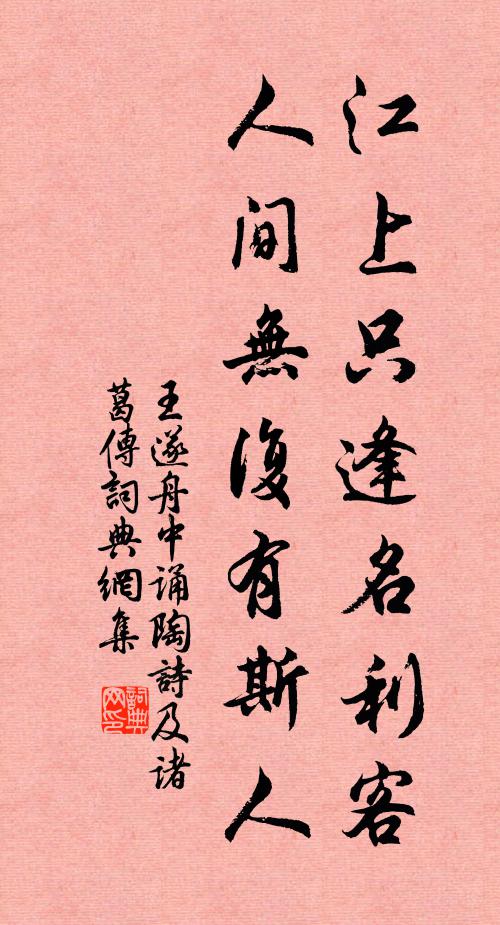 江上只逢名利客
人間無復有斯人
王遂舟中誦陶詩及诸
葛傳詞典網集
詞典
网印